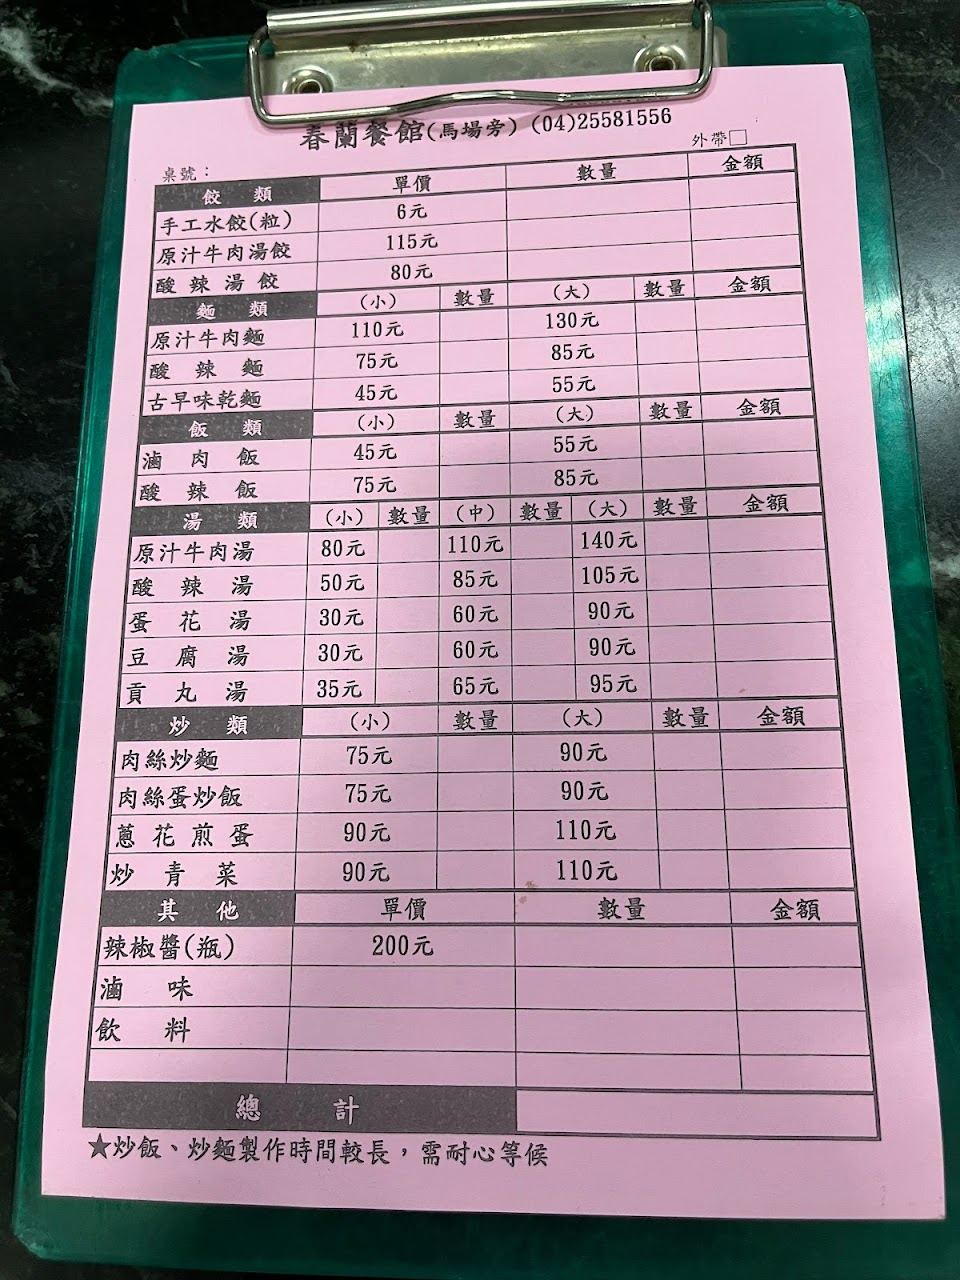 春蘭餐館(馬場旁) (04)25581556
桌號： 外帶□
餃類 單價 數量 金額
手工水餃(粒) 6元
原汁牛肉湯餃 115元
酸辣湯餃 80元
麵類 (小) 數量 (大) 數量 金額
原汁牛肉麵 110元 130元
酸辣麵 75元 85元
古早味乾麵 45元 55元
飯類 (小) 數量 (大) 數量 金額
滷肉飯 45元 55元
酸辣飯 75元 85元
湯類 (小) 數量 (中) 數量 (大) 數量 金額
原汁牛肉湯 80元 110元 140元
酸辣湯 50元 85元 105元
蛋花湯 30元 60元 90元
豆腐湯 30元 60元 90元
貢丸湯 35元 65元 95元
炒類 (小) 數量 (大) 數量 金額
肉絲炒麵 75元 90元
肉絲蛋炒飯 75元 90元
蔥花煎蛋 90元 110元
炒青菜 90元 110元
其他 單價 數量 金額
辣椒醬(瓶) 200元
滷味
飲料
總計
★炒飯、炒麵製作時間較長，需耐心等候